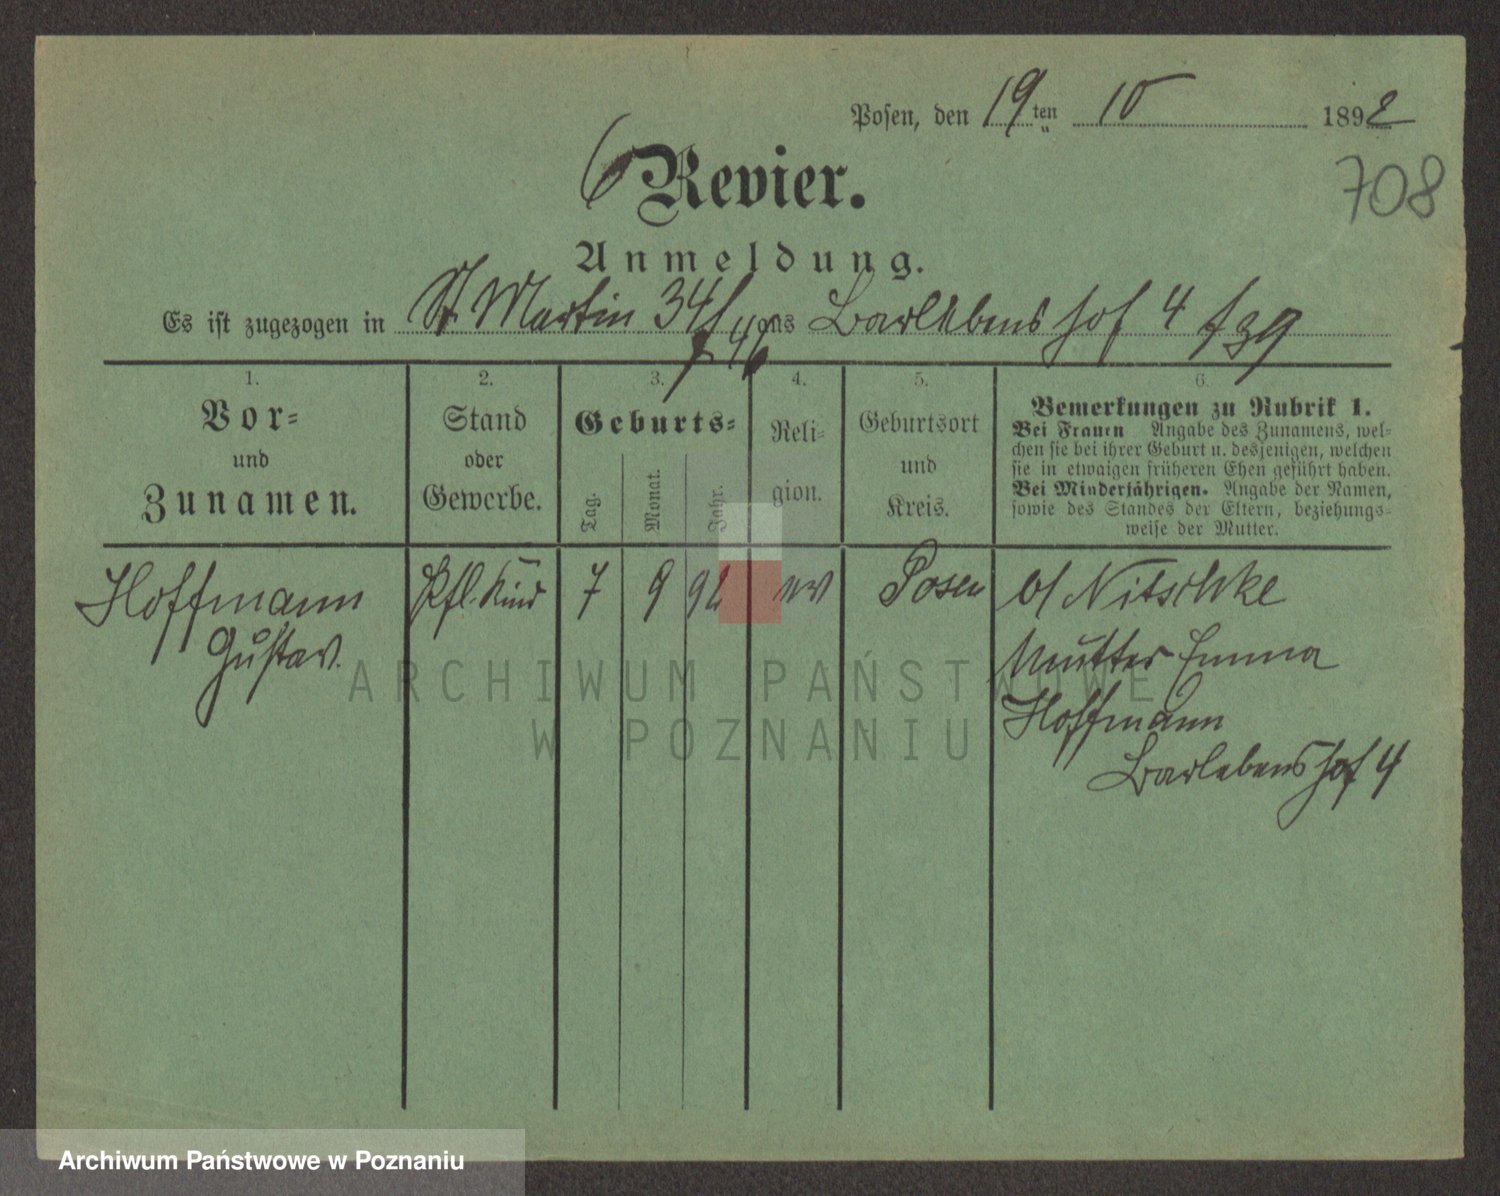 Posen, den 19ten 10 1892
708
6 Revier.
Anmeldung.
Es ist zugezogen in St. Martin 34 f 46 aus Barlebenshof 4 f 39
1. 2. 3. 4. 5. 6.
Vor-
und
Zunamen.
Stand
oder
Gewerbe.
Geburts-
Tag. Monat. Jahr.
Reli-
gion.
Geburtsort
und
Kreis.
Bemerkungen zu Rubrik 1.
Bei Frauen Angabe des Zunamens, wel-
chen sie bei ihrer Geburt u. desjenigen, welchen
sie in etwaigen früheren Ehen geführt haben.
Bei Minderjährigen. Angabe der Namen,
sowie des Standes der Eltern, beziehungs-
weise der Mutter.
Hoffmann Pfl. Kind 7 9 92 ev Posen b/ Nitschke
Gustav. Mutter Emma
Hoffmann
Barlebenshof 4
ARCHIWUM PAŃSTWOWE
W POZNANIU
Archiwum Państwowe w Poznaniu